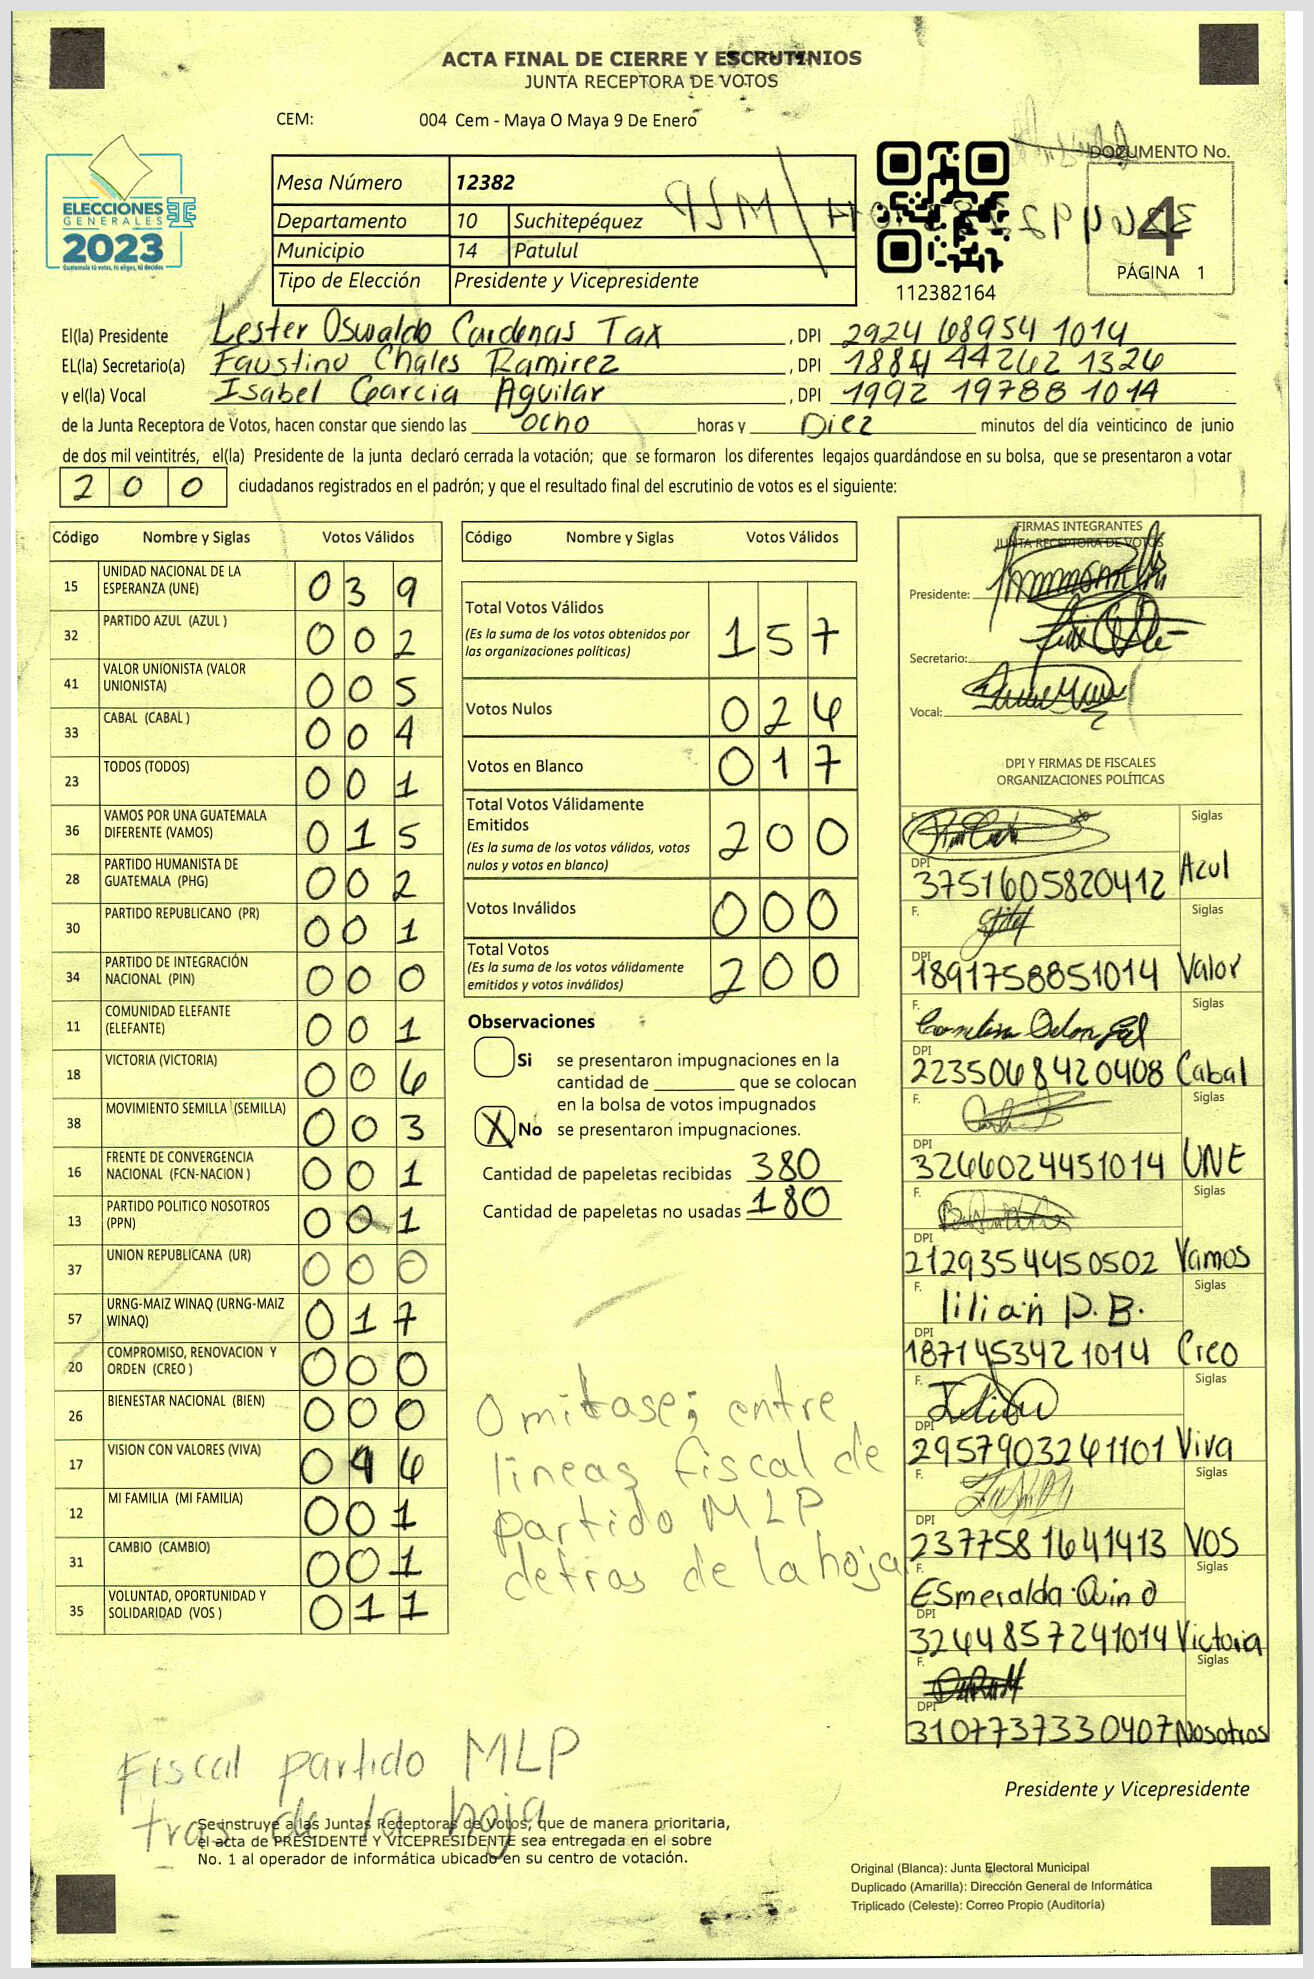 ACTA FINAL DE CIERRE Y ESCRUTINIOS
JUNTA RECEPTORA DE VOTOS
CEM: 004 Cem - Maya O Maya 9 De Enero
DOCUMENTO No.
4
PÁGINA 1
ELECCIONES
GENERALES
2023
Guatemala tú votas, tú eliges, tú decides
Mesa Número 12382
Departamento 10 Suchitepéquez
Municipio 14 Patulul
Tipo de Elección Presidente y Vicepresidente
MLP
112382164
El(la) Presidente Lester Oswaldo Cardenas Tax, DPI 2924 68954 1014
EL(la) Secretario(a) Faustino Chales Ramirez, DPI 1884 44262 1326
y el(la) Vocal Isabel Garcia Aguilar, DPI 1992 19788 1014
de la Junta Receptora de Votos, hacen constar que siendo las ocho horas y Diez minutos del día veinticinco de junio
de dos mil veintitrés, el(la) Presidente de la junta declaró cerrada la votación; que se formaron los diferentes legajos guardándose en su bolsa, que se presentaron a votar
200 ciudadanos registrados en el padrón; y que el resultado final del escrutinio de votos es el siguiente:
Código Nombre y Siglas Votos Válidos
15 UNIDAD NACIONAL DE LA ESPERANZA (UNE) 039
32 PARTIDO AZUL (AZUL ) 002
41 VALOR UNIONISTA (VALOR UNIONISTA) 005
33 CABAL (CABAL ) 004
23 TODOS (TODOS) 001
36 VAMOS POR UNA GUATEMALA DIFERENTE (VAMOS) 015
28 PARTIDO HUMANISTA DE GUATEMALA (PHG) 002
30 PARTIDO REPUBLICANO (PR) 001
34 PARTIDO DE INTEGRACIÓN NACIONAL (PIN) 000
11 COMUNIDAD ELEFANTE (ELEFANTE) 001
18 VICTORIA (VICTORIA) 006
38 MOVIMIENTO SEMILLA (SEMILLA) 003
16 FRENTE DE CONVERGENCIA NACIONAL (FCN-NACION ) 001
13 PARTIDO POLITICO NOSOTROS (PPN) 001
37 UNION REPUBLICANA (UR) 000
57 URNG-MAIZ WINAQ (URNG-MAIZ WINAQ) 017
20 COMPROMISO, RENOVACION Y ORDEN (CREO ) 000
26 BIENESTAR NACIONAL (BIEN) 000
17 VISION CON VALORES (VIVA) 046
12 MI FAMILIA (MI FAMILIA) 001
31 CAMBIO (CAMBIO) 001
35 VOLUNTAD, OPORTUNIDAD Y SOLIDARIDAD (VOS ) 011
Código Nombre y Siglas Votos Válidos
Total Votos Válidos 157
(Es la suma de los votos obtenidos por
las organizaciones políticas)
Votos Nulos 026
Votos en Blanco 017
Total Votos Válidamente
Emitidos 200
(Es la suma de los votos válidos, votos
nulos y votos en blanco)
Votos Inválidos 000
Total Votos 200
(Es la suma de los votos válidamente
emitidos y votos inválidos)
Observaciones
Si se presentaron impugnaciones en la
cantidad de ________ que se colocan
en la bolsa de votos impugnados
X No se presentaron impugnaciones.
Cantidad de papeletas recibidas 380
Cantidad de papeletas no usadas 180
Omitase; entre
lineas fiscal de
partido MLP
detras de la hoja
FIRMAS INTEGRANTES
JUNTA RECEPTORA DE VOTOS
Presidente:
Secretario:
Vocal:
DPI Y FIRMAS DE FISCALES
ORGANIZACIONES POLÍTICAS
Siglas
DPI
3751605820412 Azul
F. Siglas
DPI
1891758851014 Valor
F. Siglas
DPI
2235068420408 Cabal
F. Siglas
DPI
3266024451014 UNE
F. Siglas
DPI
2129354450502 Vamos
F. lilian P.B. Siglas
DPI
1871453421014 Creo
F. Siglas
DPI
2957903261101 Viva
F. Siglas
DPI
2377581641413 VOS
F. Esmeralda Quino Siglas
DPI
3244857241014 Victoria
F. Siglas
DPI
3107737330407 Nosotros
Fiscal partido MLP
tras de la hoja
Presidente y Vicepresidente
Se instruye a las Juntas Receptoras de Votos, que de manera prioritaria,
el acta de PRESIDENTE Y VICEPRESIDENTE sea entregada en el sobre
No. 1 al operador de informática ubicado en su centro de votación.
Original (Blanca): Junta Electoral Municipal
Duplicado (Amarilla): Dirección General de Informática
Triplicado (Celeste): Correo Propio (Auditoría)